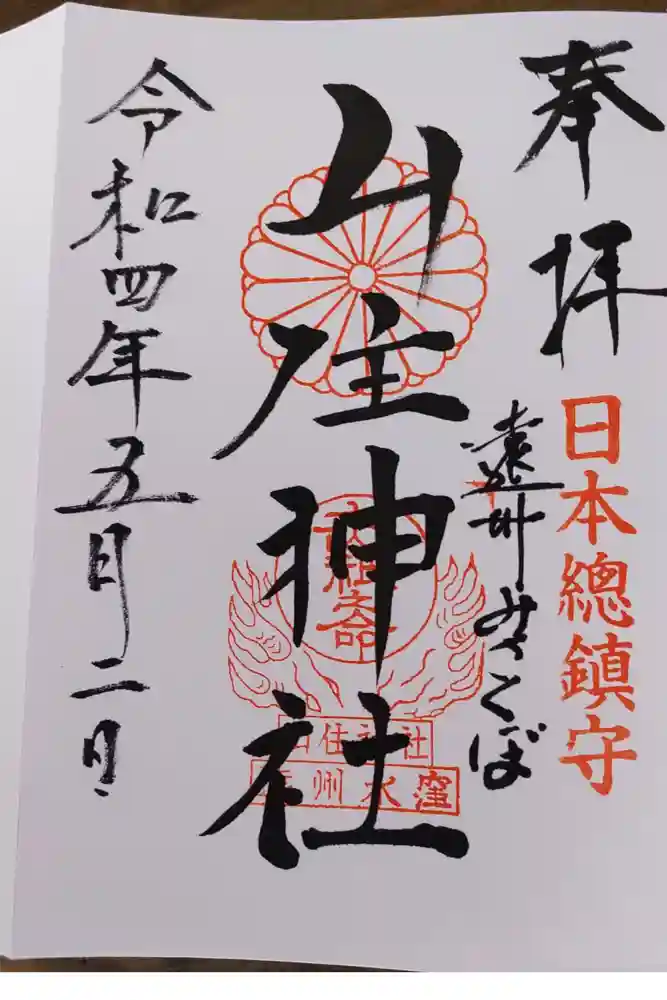 奉拝
日本總鎮守
遠州みさくぼ
山住神社
山住神社
遠州水窪
令和四年五月二日